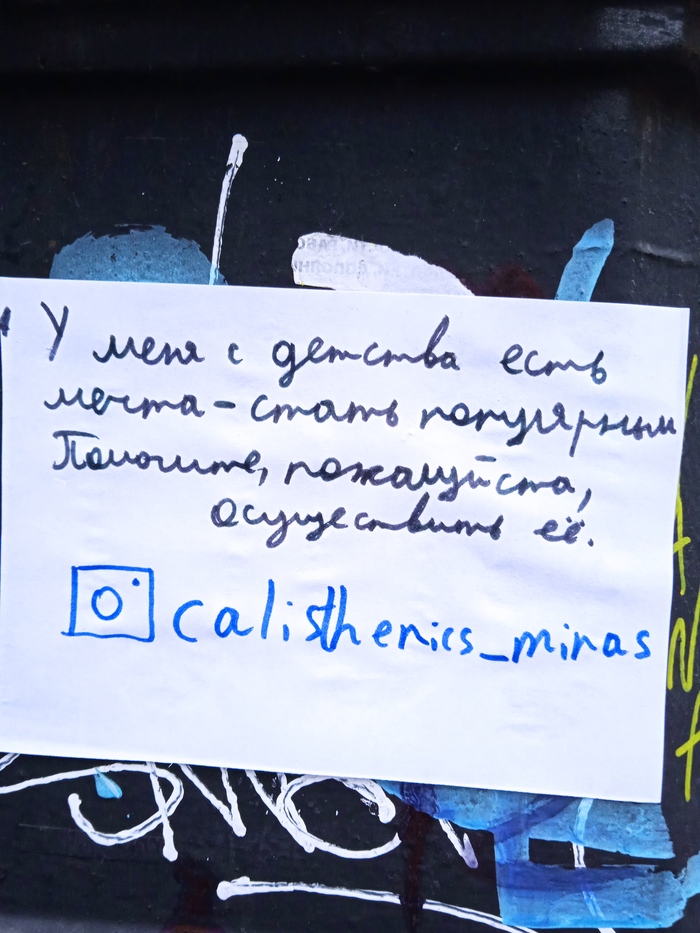 У меня с детства есть
мечта - стать популярным
Помогите, пожалуйста,
осуществить её.
calisthenics_minas